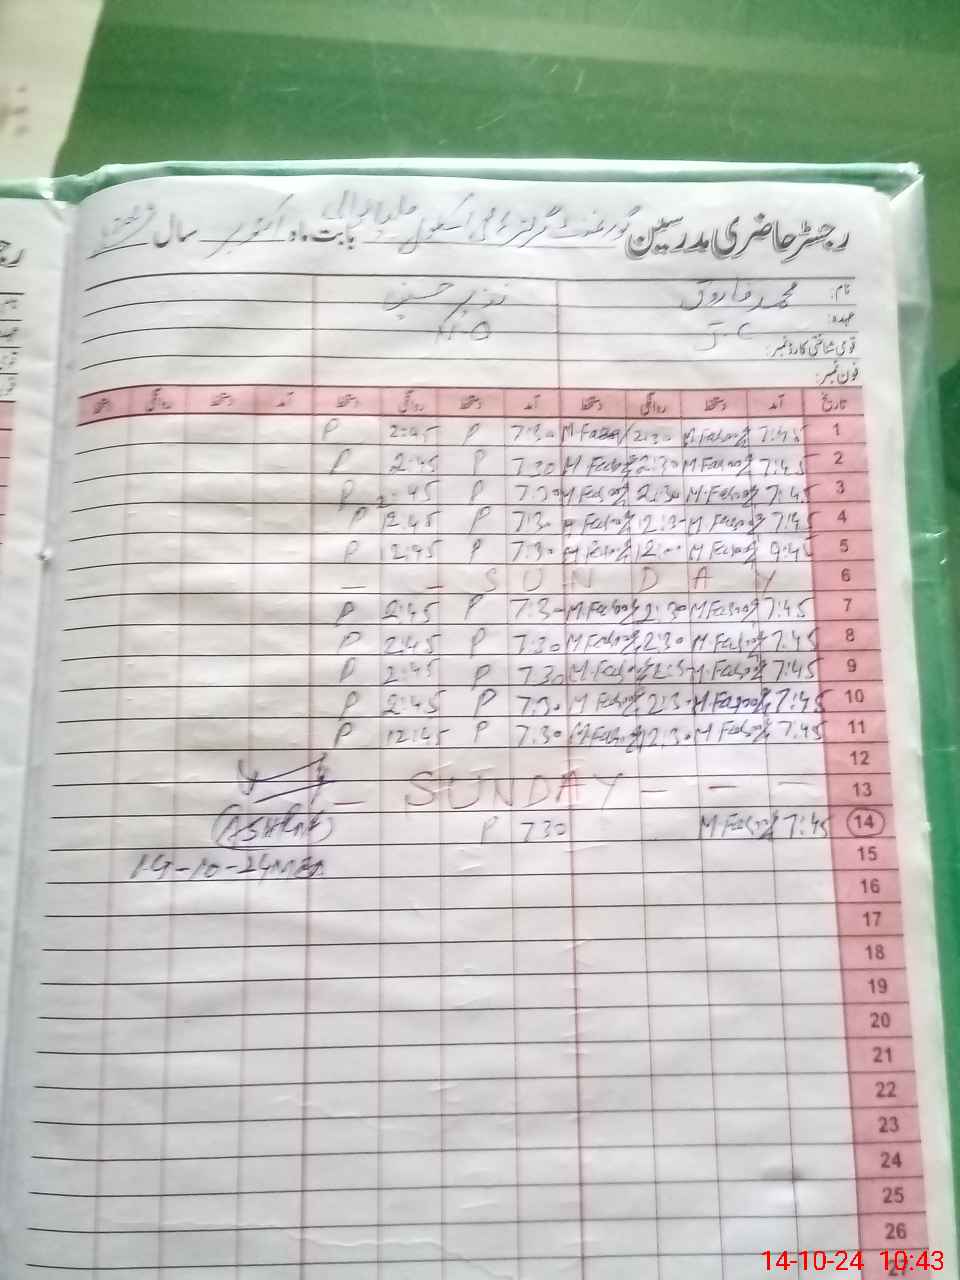 رجسٹر حاضری مدرسین گورنمنٹ گرلز ہائی سکول بابت ماہ اکتوبر سال
نام: محمد فاروق نذیر حسین
عہدہ: J-C N-Q
قومی شناختی کارڈ نمبر:
فون نمبر:
تاریخ آمد دستخط روانگی دستخط آمد دستخط روانگی دستخط آمد دستخط روانگی دستخط
1 7:45 M.Farooq 2:30 M.Farooq 7:30 P 2:45 P
2 7:45 M.Farooq 2:30 M.Farooq 7:30 P 2:45 P
3 7:45 M.Farooq 2:30 M.Farooq 7:30 P 2:45 P
4 7:45 M.Farooq 12:30 M.Farooq 7:30 P 12:45 P
5 9:45 M.Farooq 12:00 M.Farooq 7:30 P 12:45 P
6 — - SUNDAY
7 7:45 M.Farooq 2:30 M.Farooq 7:30 P 2:45 P
8 7:45 M.Farooq 2:30 M.Farooq 7:30 P 2:45 P
9 7:45 M.Farooq 2:30 M.Farooq 7:30 P 2:45 P
10 7:45 M.Farooq 2:30 M.Farooq 7:30 P 2:45 P
11 7:45 M.Farooq 12:30 M.Farooq 7:30 P 12:45 P
12
13 — SUNDAY — — —
14 7:45 M.Farooq 730 P
15 14-10-24
16
17
18
19
20
21
22
23
24
25
26
27
14-10-24 10:43